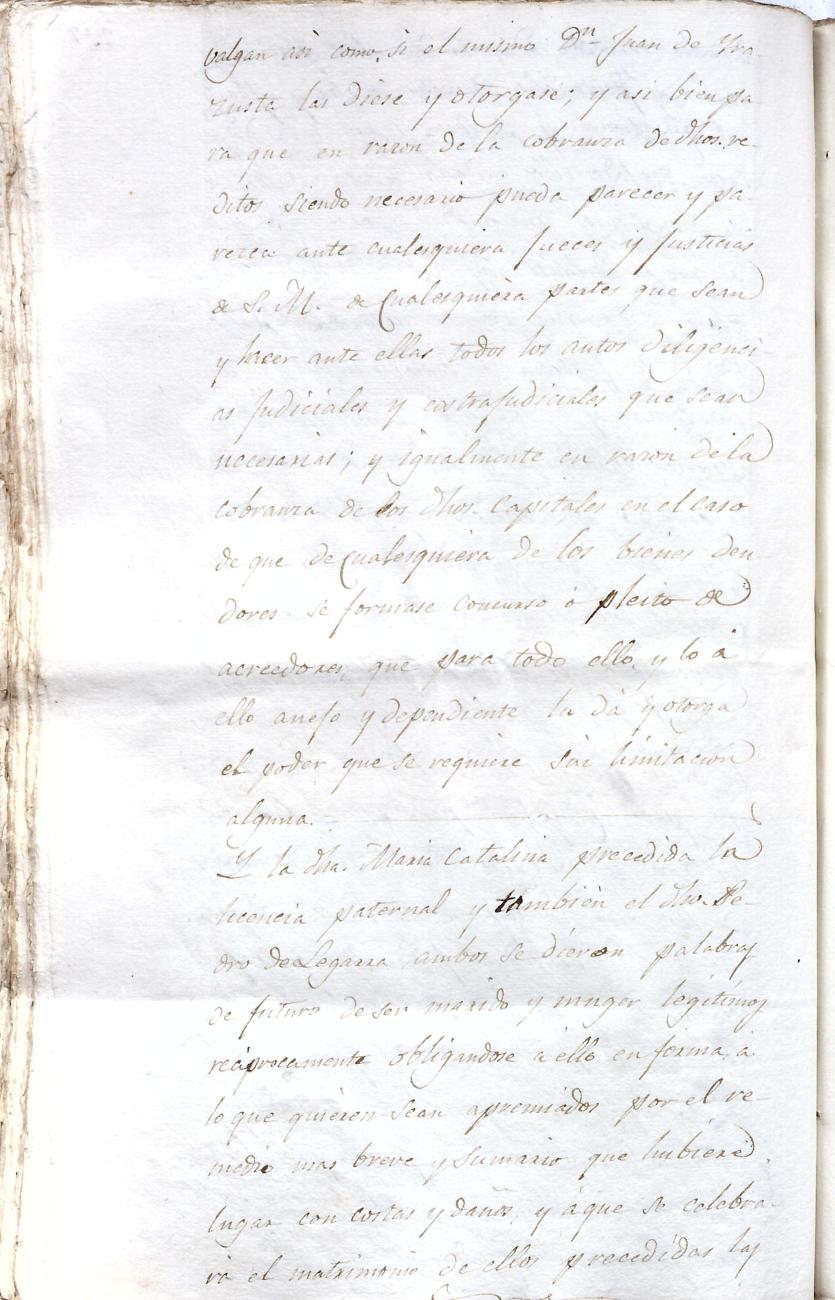 valgan asi como si el mismo Dn Juan de Yra-
zusta las diese y otorgase; y asi bien pa
ra que en razon de la cobranza de dhos. re-
ditos siendo necesario pueda parecer y pa-
rezca ante cualesquiera Jueces y Justicias
de S. M. de Cualesquiera partes que sean
y hacer ante ellas todos los autos diligenci
as Judiciales y extraJudiciales que sean
necesarias; y igualmente en razon de la
cobranza de los dhos. Capitales en el caso
de que de Cualesquiera de los bienes deu-
dores se formase Concurso ó pleito de
acreedores, que para todo ello, y lo á
ello anejo y dependiente la dá y otorga
el poder que se requiere sin limitacion
alguna.
Y la dha. Maria Catalina precedida la
licencia paternal y también el dho. Pe-
dro de Legarra ambos se dieron palabras
de futuro de ser marido y muger legitimos
reciprocamente obligandose á ello en forma, á
lo que quieren sean apremiados por el re-
medio mas breve y sumario que hubiere
lugar con costas y daños, y á que se celebra-
rá el matrimonio de ellos precedidas las